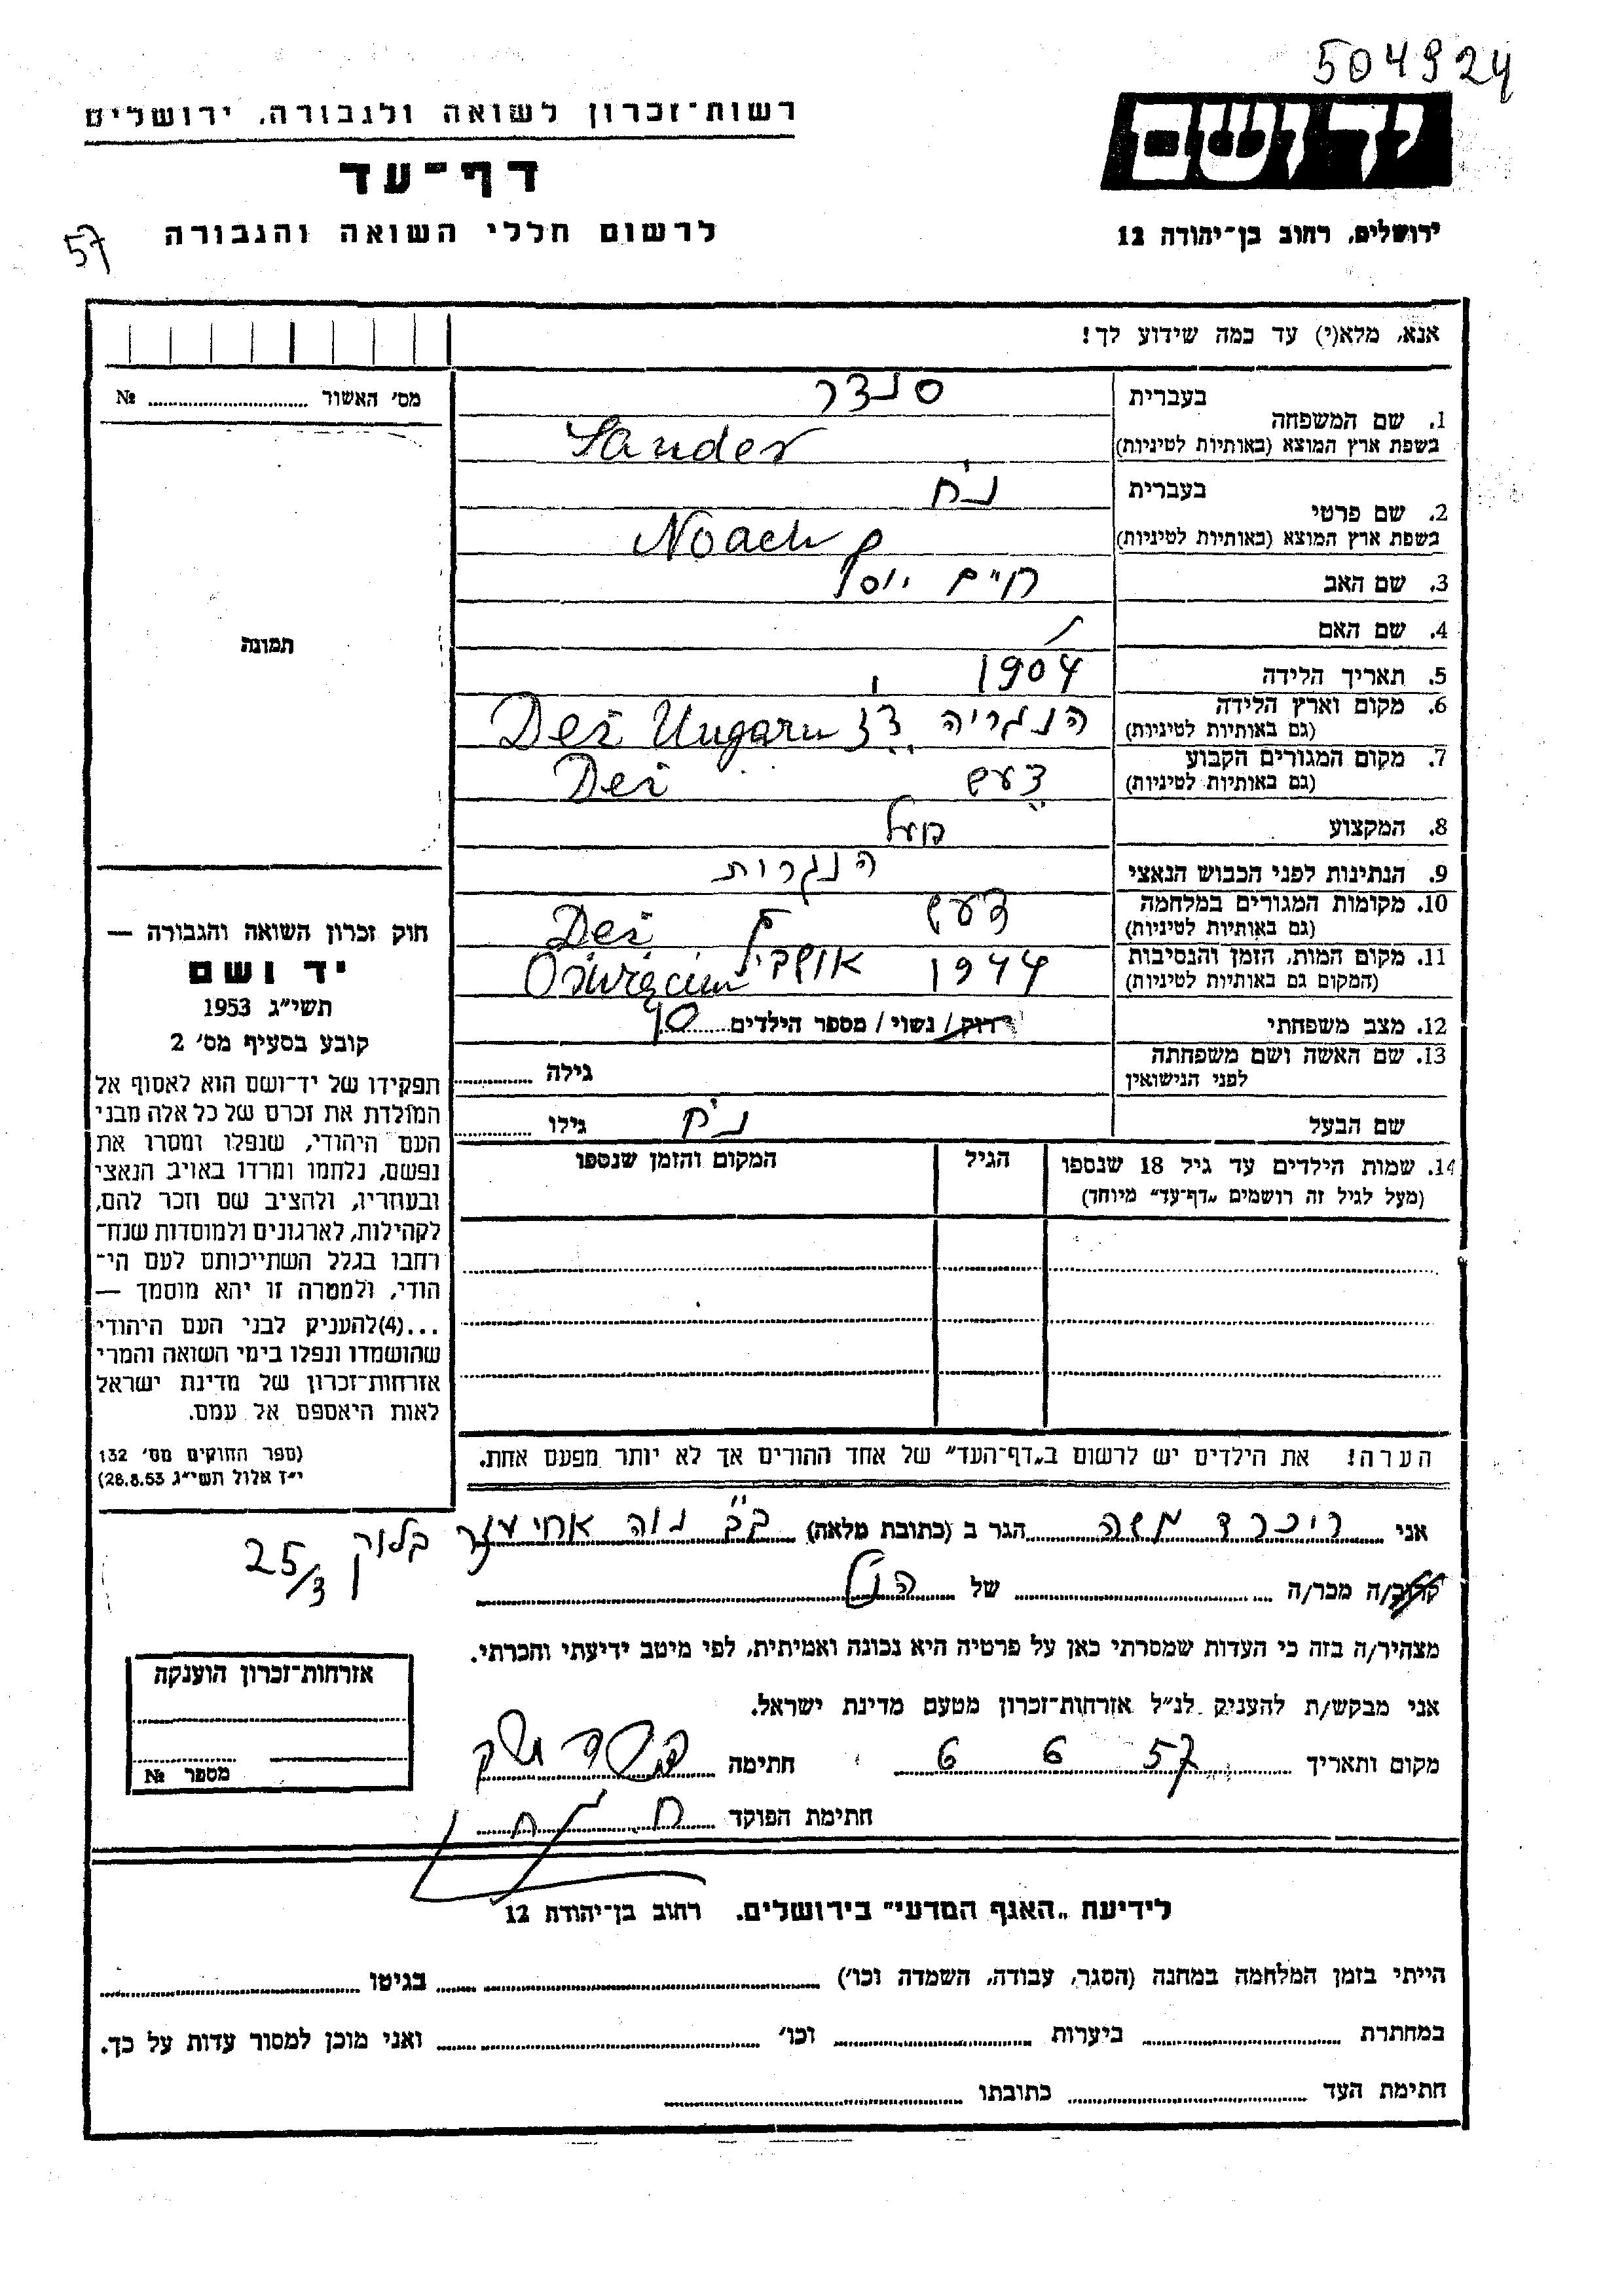 504924
רשות־זכרון לשואה ולגבורה, ירושלים
דף־עד
לרשום חללי השואה והגבורה
57
ידושם
ירושלים, רחוב בן־יהודה 12
אנא, מלא(י) עד כמה שידוע לך!
מס' האשור № 
תמונה
1. שם המשפחה
בעברית סנדר
בשפת ארץ המוצא (באותיות לטיניות) Sander
2. שם פרטי
בעברית נח
בשפת ארץ המוצא (באותיות לטיניות) Noach
3. שם האב חיים יוסף
4. שם האם
5. תאריך הלידה 1904
6. מקום וארץ הלידה
(גם באותיות לטיניות) הנגריה Deż Ungarn
7. מקום המגורים הקבוע
(גם באותיות לטיניות) דעש Deż
8. המקצוע פועל
9. הנתינות לפני הכבוש הנאצי הנגרות
10. מקומות המגורים במלחמה
(גם באותיות לטיניות) דעש Deż
11. מקום המות, הזמן והנסיבות
(המקום גם באותיות לטיניות) 1944 Oświęcim
12. מצב משפחתי רוק / נשוי / מספר הילדים 10
13. שם האשה ושם משפחתה
לפני הנישואין
גילה
שם הבעל
גילו
14. שמות הילדים עד גיל 18 שנספו
(מעל לגיל זה רושמים „דף־עד" מיוחד)
הגיל
המקום והזמן שנספו
חוק זכרון השואה והגבורה —
יד ושם
תשי"ג 1953
קובע בסעיף מס' 2
תפקידו של יד־ושם הוא לאסוף אל
המולדת את זכרם של כל אלה מבני
העם היהודי, שנפלו ומסרו את
נפשם, נלחמו ומרדו באויב הנאצי
ובעוזריו, ולהציב שם וזכר להם,
לקהילות, לארגונים ולמוסדות שנח־
רחבו בגלל השתייכותם לעם הי־
הודי, ולמטרה זו יהא מוסמך —
...(4)להעניק לבני העם היהודי
שהושמדו ונפלו בימי השואה והמרי
אזרחות־זכרון של מדינת ישראל
לאות היאספם אל עמם.
(ספר החוקים מס' 132
י"ז אלול תשי"ג 28.8.53)
הערה! את הילדים יש לרשום ב„דף־העד" של אחד ההורים אך לא יותר מפעם אחת.
אני ריכרד משה הגר ב (כתובת מלאה) בב נוה אחיעזר בלוק
25/3
קרוב/ה מכר/ה של הנ"ל
מצהיר/ה בזה כי העדות שמסרתי כאן על פרטיה היא נכונה ואמיתית, לפי מיטב ידיעתי והכרתי.
אני מבקש/ת להעניק לנ"ל אזרחות־זכרון מטעם מדינת ישראל.
מקום ותאריך 57 6 6 חתימה
חתימת הפוקד
אזרחות־זכרון הוענקה
מספר №
לידיעת „האגף המדעי" בירושלים. רחוב בן־יהודה 12
הייתי בזמן המלחמה במחנה (הסגר, עבודה, השמדה וכו') בגיטו
במחתרת ביערות וכו' ואני מוכן למסור עדות על כך.
חתימת העד כתובתו